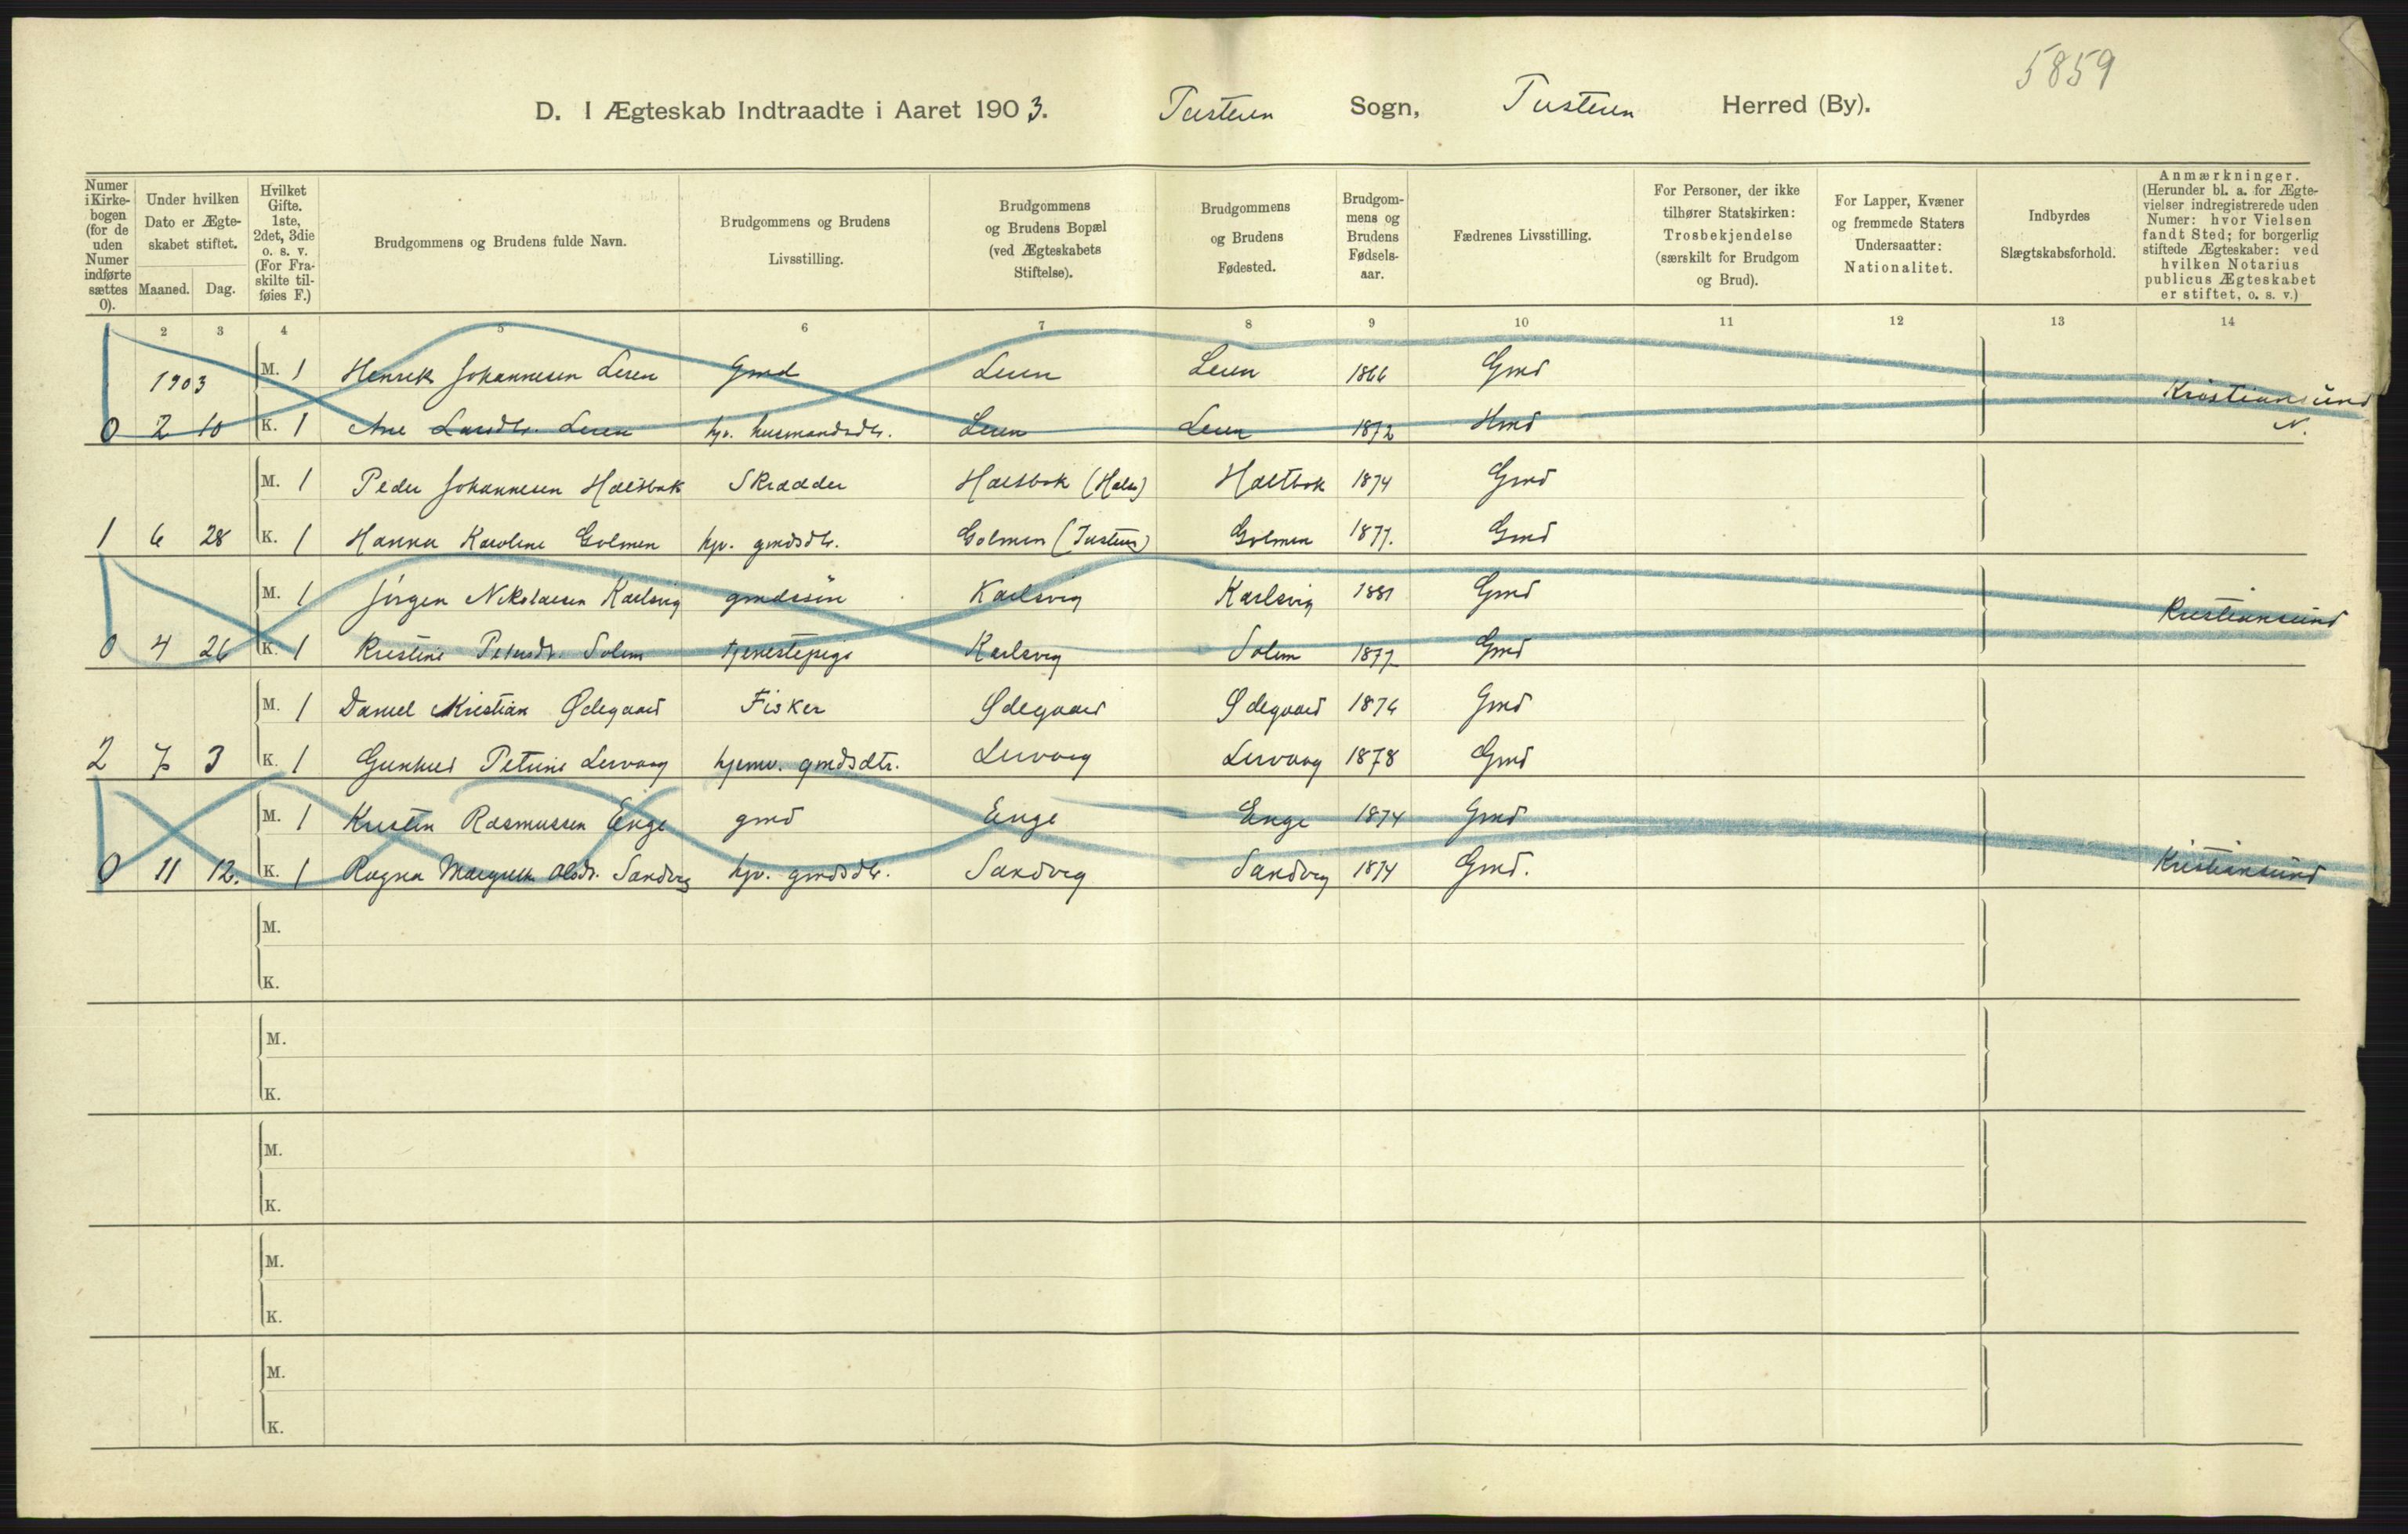 5859
D. I Ægteskab Indtraadte i Aaret 1903. Tusteren Sogn, Tusteren Herred (By).
Numer i Kirkebogen (for de uden Numer indførte sættes 0).
Under hvilken Dato er Ægteskabet stiftet.
Maaned. Dag.
Hvilket Gifte. 1ste, 2det, 3die o. s. v. (For Fraskilte tilføies F.)
Brudgommens og Brudens fulde Navn.
Brudgommens og Brudens Livsstilling.
Brudgommens og Brudens Bopæl (ved Ægteskabets Stiftelse).
Brudgommens og Brudens Fødested.
Brudgommens og Brudens Fødselsaar.
Fædrenes Livsstilling.
For Personer, der ikke tilhører Statskirken: Trosbekjendelse (særskilt for Brudgom og Brud).
For Lapper, Kvæner og fremmede Staters Undersaatter: Nationalitet.
Indbyrdes Slægtskabsforhold.
Anmærkninger. (Herunder bl. a. for Ægtevielser indregistrerede uden Numer: hvor Vielsen fandt Sted; for borgerlig stiftede Ægteskaber: ved hvilken Notarius publicus Ægteskabet er stiftet, o. s. v.)
2 3 4 5 6 7 8 9 10 11 12 13 14
1903 M. 1 Henrik Johannesen Leren Gmd Leren Leren 1866 Gmd Kristiansund
0 2 10 K. 1 Ane Larsdtr. Leren hjv. husmandsdtr. Leren Leren 1872 Hmd N.
M. 1 Peder Johannesen Halsbak Skrædder Halsbak (Hals) Halsbak 1874 Gmd
1 6 28 K. 1 Hanna Karoline Golmen hjv. gmdsdtr. Golmen (Tusteren) Golmen 1877. Gmd
M. 1 Jörgen Nikolaisen Karlsvig gmdssön Karlsvig Karlsvig 1881 Gmd Kristiansund
0 4 26 K. 1 Kristine Petersdtr. Solem tjenestepige Karlsvig Solem 1877 Gmd
M. 1 Daniel Kristian Ødegaard Fisker Ødegaard Ødegaard 1876 Gmd
2 7 3 K. 1 Gunhild Petrine Lervaag hjemv. gmdsdtr. Lervaag Lervaag 1878 Gmd
M. 1 Kristen Rasmussen Enge gmd Enge Enge 1874 Gmd
0 11 12. K. 1 Ragna Margrethe Olsdtr. Sandvig hjv. gmdsdtr. Sandvig Sandvig 1874 Gmd. Kristiansund
M.
K.
M.
K.
M.
K.
M.
K.
M.
K.